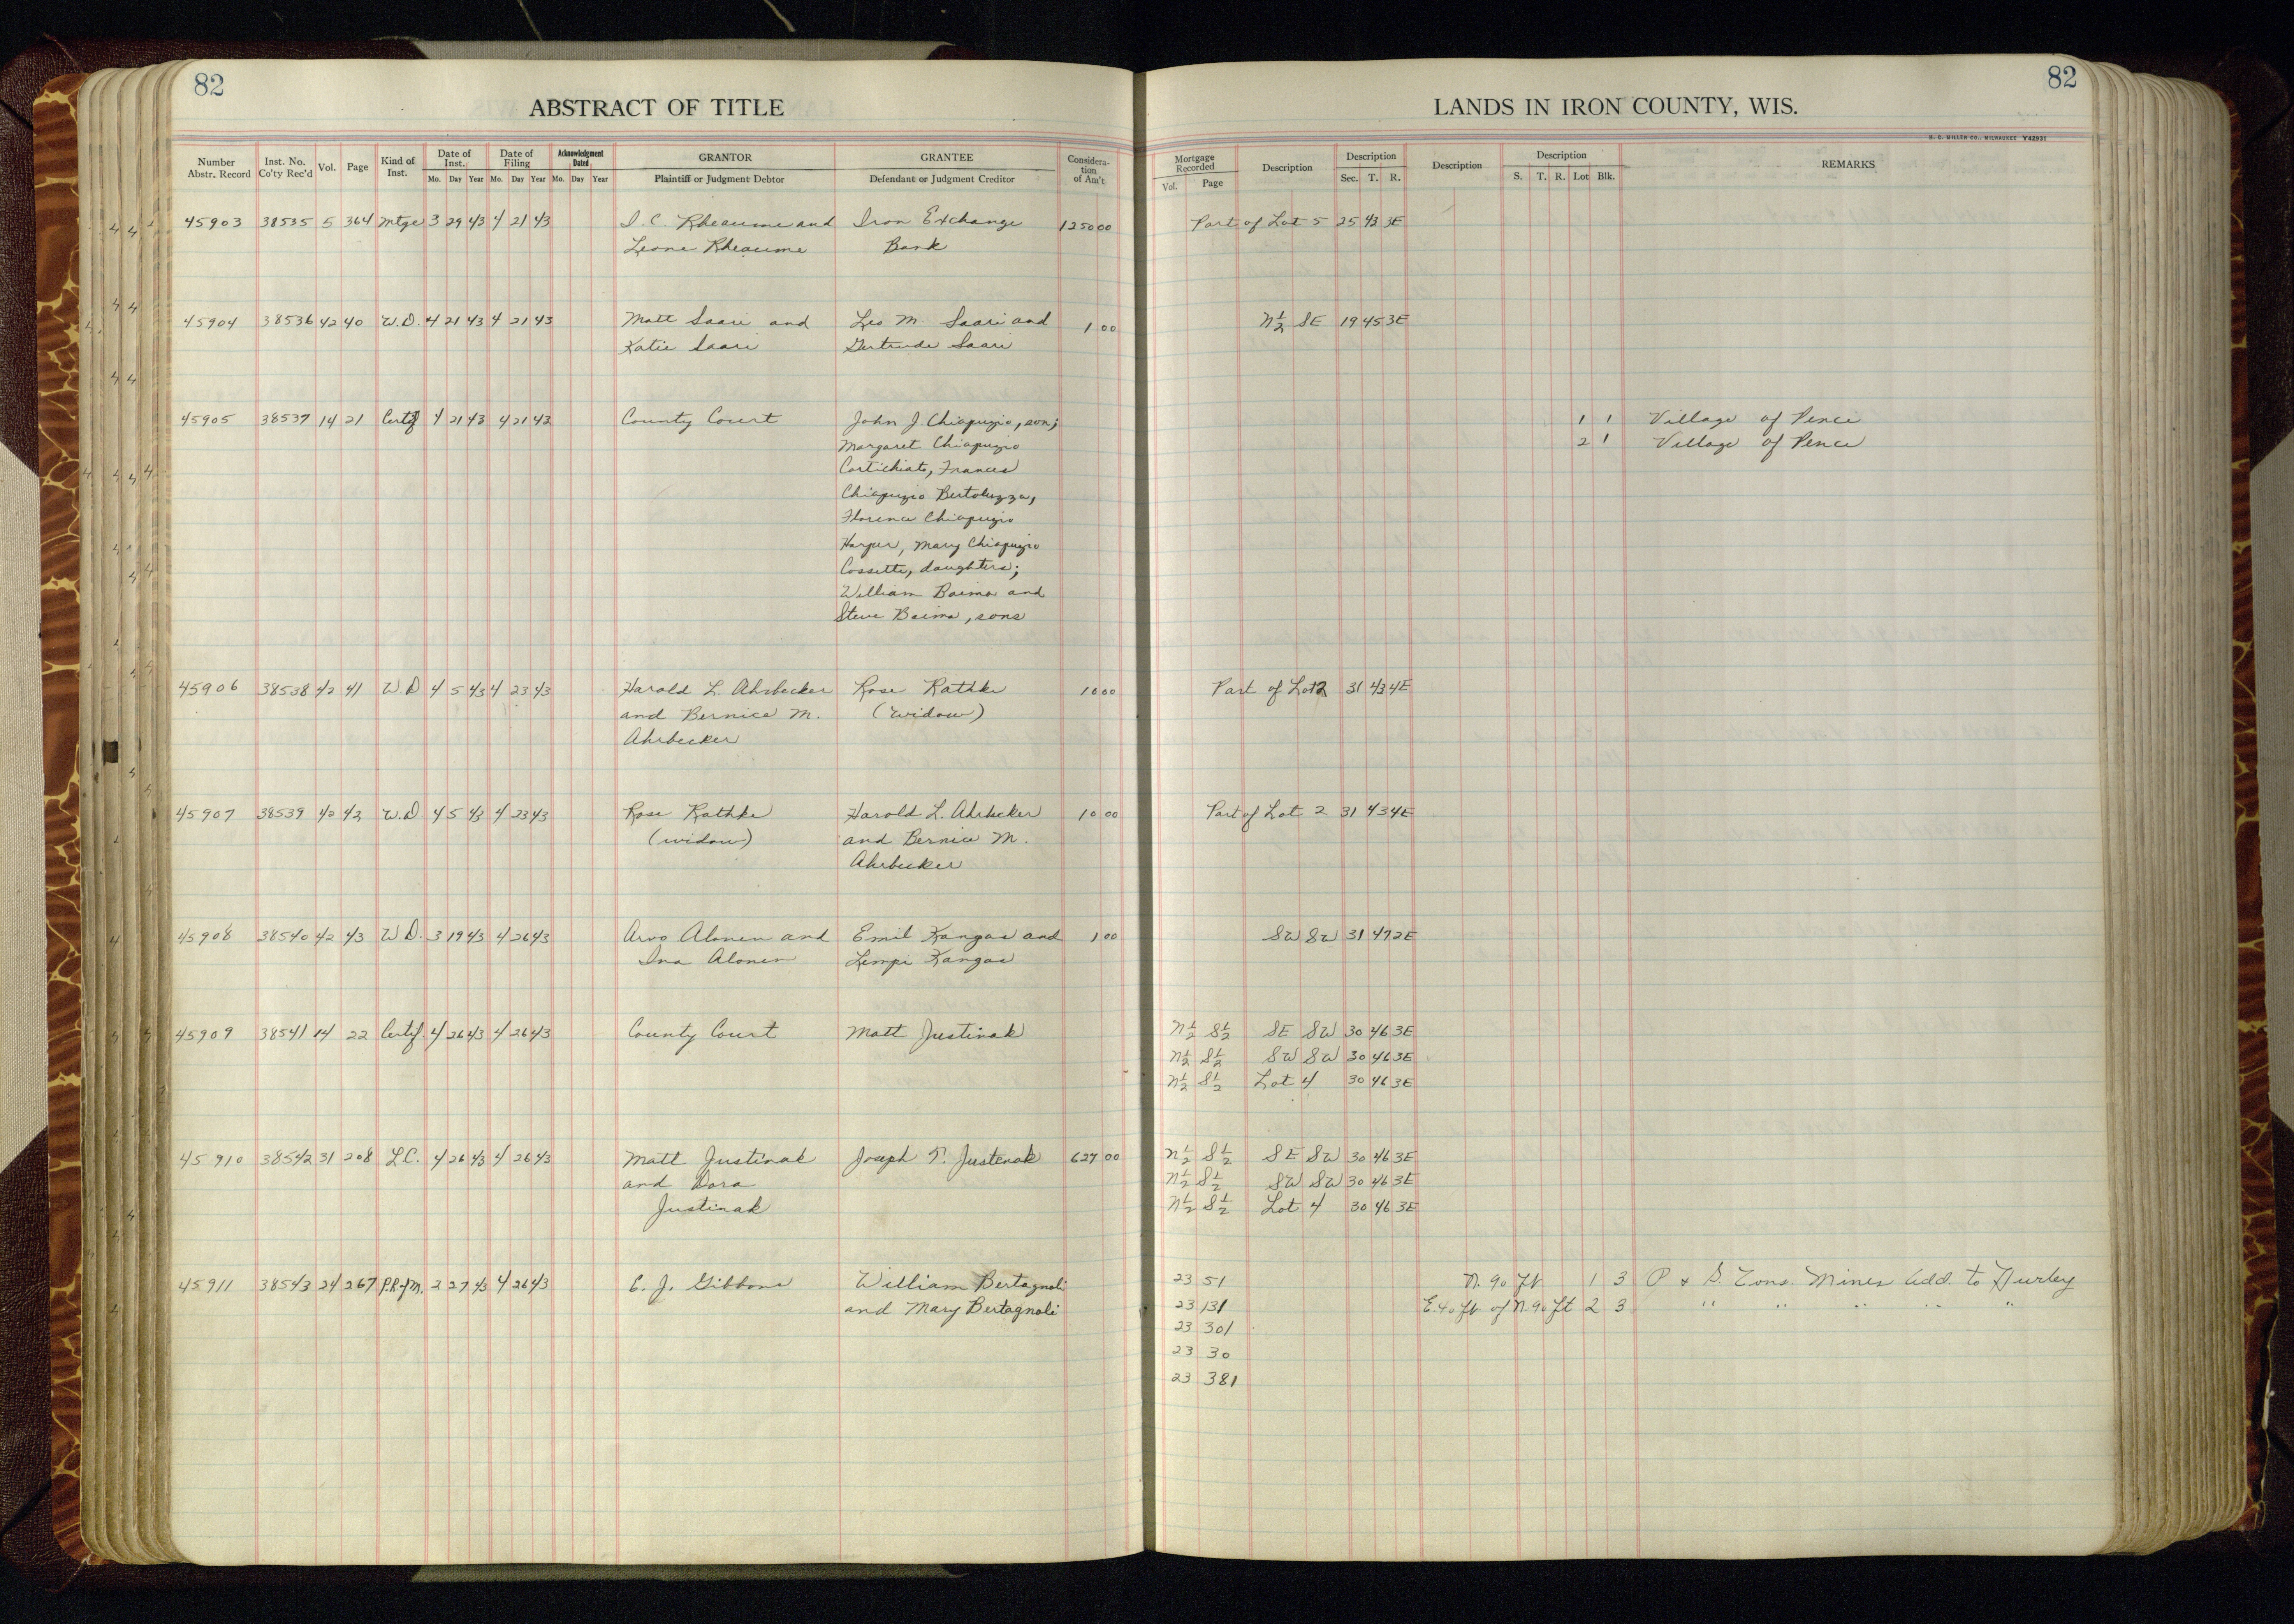 82
ABSTRACT OF TITLE
LANDS IN IRON COUNTY, WIS.
82
H. C. MILLER CO., MILWAUKEE Y42931
Number Abstr. Record Inst. No. Co'ty Rec'd Vol. Page Kind of Inst. Date of Inst. Mo. Day Year Date of Filing Mo. Day Year Acknowledgment Dated Mo. Day Year GRANTOR Plaintiff or Judgment Debtor GRANTEE Defendant or Judgment Creditor Considera-tion of Am't Mortgage Recorded Vol. Page Description Description Sec. T. R. Description Description S. T. R. Lot Blk. REMARKS
45903 38535 5 364 Mtge 3 29 43 4 21 43 I. C. Rheaume and Iron Exchange 1250 00 Part of Lot 5 25 43 3E
Leone Rheaume Bank
45904 38536 42 40 W.D. 4 21 43 4 21 43 Matt Saari and Leo M. Saari and 1 00 N½ SE 19 45 3E
Katie Saari Gertrude Saari
45905 38537 14 21 Certf 4 21 43 4 21 43 County Court John J. Chiapuzio, son; 1 1 Village of Pence
Margaret Chiapuzio 2 1 Village of Pence
Cortichiato, Frances
Chiapuzio Bertoluzza,
Florence Chiapuzio
Harper, Mary Chiapuzio
Cossette, daughters;
William Baima and
Steve Baima, sons
45906 38538 42 41 W.D 4 5 43 4 23 43 Harold L. Ahrbecker Rose Rathke 10 00 Part of Lot 2 31 43 4E
and Bernice M. (widow)
Ahrbecker
45907 38539 42 42 W.D. 4 5 43 4 23 43 Rose Rathke Harold L. Ahrbecker 10 00 Part of Lot 2 31 43 4E
(widow) and Bernice M.
Ahrbecker
45908 38540 42 43 W.D. 3 19 43 4 26 43 Arvo Alonen and Emil Kangas and 1 00 SW SW 31 47 2E
Ina Alonen Lempi Kangas
45909 38541 14 22 Certf. 4 26 43 4 26 43 County Court Matt Justinak N½ S½ SE SW 30 46 3E
N½ S½ SW SW 30 46 3E
N½ S½ Lot 4 30 46 3E
45910 38542 31 208 L.C. 4 26 43 4 26 43 Matt Justinak Joseph T. Justenak 627 00 N½ S½ SE SW 30 46 3E
and Dora N½ S½ SW SW 30 46 3E
Justinak N½ S½ Lot 4 30 46 3E
45911 38543 24 267 P.R.of M. 2 27 43 4 26 43 E. J. Gibbons William Bertagnoli 23 51 N. 90 ft 1 3 P & S. Cons. Mines Add. to Hurley
and Mary Bertagnoli 23 131 E. 40 ft. of N. 90 ft 2 3 " " " " "
23 301
23 30
23 381